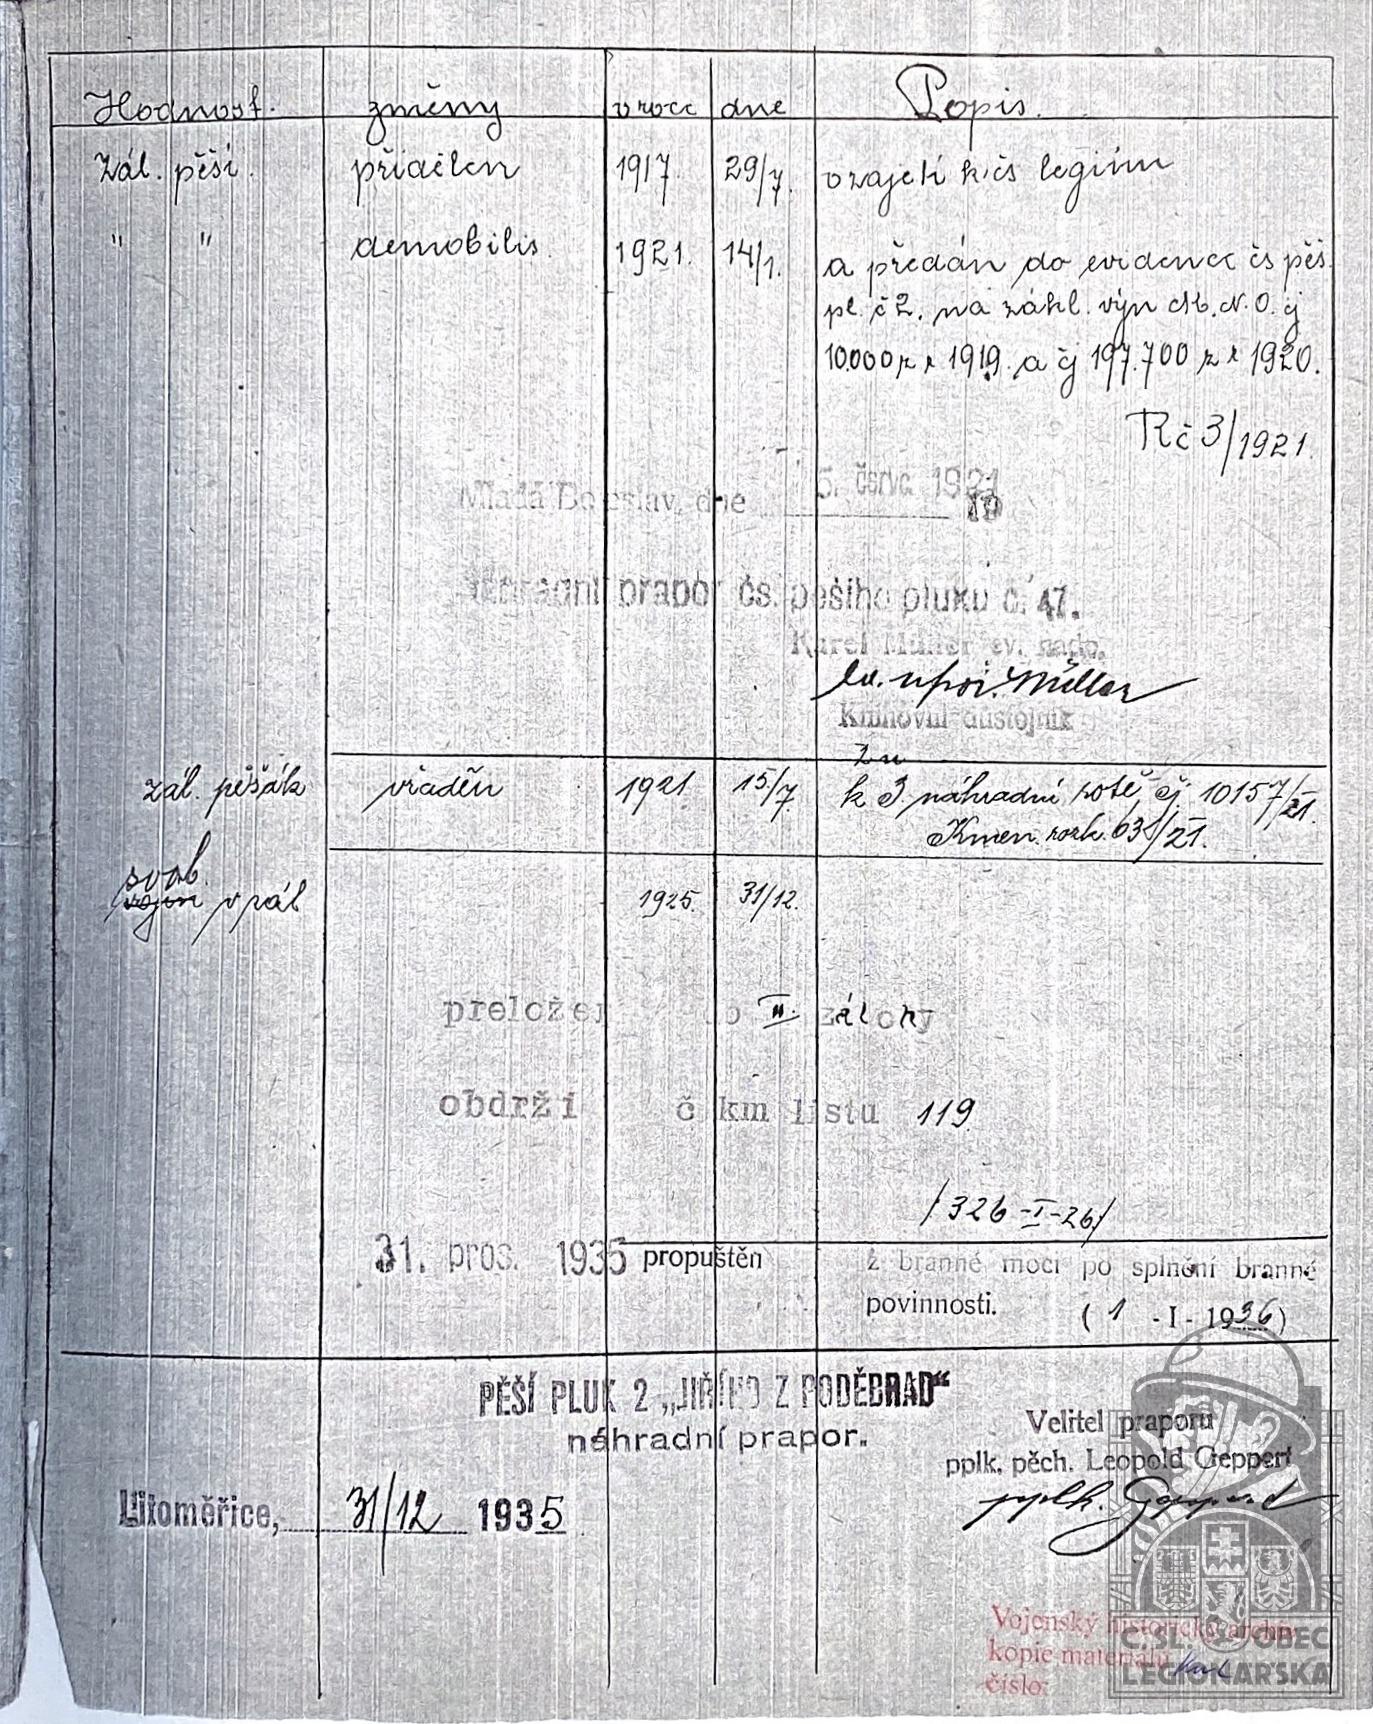 Hodnost. změny v roce dne Popis.
Zál. pěší. přidělen 1917. 29/7. v zajetí k čs legiím
" " demobilis. 1921. 14/1. a předán do evidence čs pěš.
pl. č 2. na zákl. výn M.N.O. čj
10.000 z r 1919. a čj 197.700 z r 1920.
R č 3/1921.
Mladá Boleslav, dne 5. června 1921
19
Náhradní prapor čs. pěšího pluku č. 47.
Karel Müller ev. nadp.
Müller
Kmenový důstojník
zál. pěšák vřaděn 1921 15/7 k 3. náhradní rotě čj. 10157/21.
Kmen. rozk. 63/21.
svob.
vojín v zál 1925. 31/12.
přeložen do II. zálohy
obdrží č km listu 119
/326-I-26/
31. pros. 1935 propuštěn z branné moci po splnění branné
povinnosti. (1 - I - 1936)
PĚŠÍ PLUK 2 „JIŘÍHO Z PODĚBRAD“
náhradní prapor.
Velitel praporu
pplk. pěch. Leopold Geppert
pplk. Geppert
Litoměřice, 31/12 1935
Vojenský historický archiv
kopie materiálu
číslo:
Č.SL. OBEC
LEGIONÁŘSKÁ